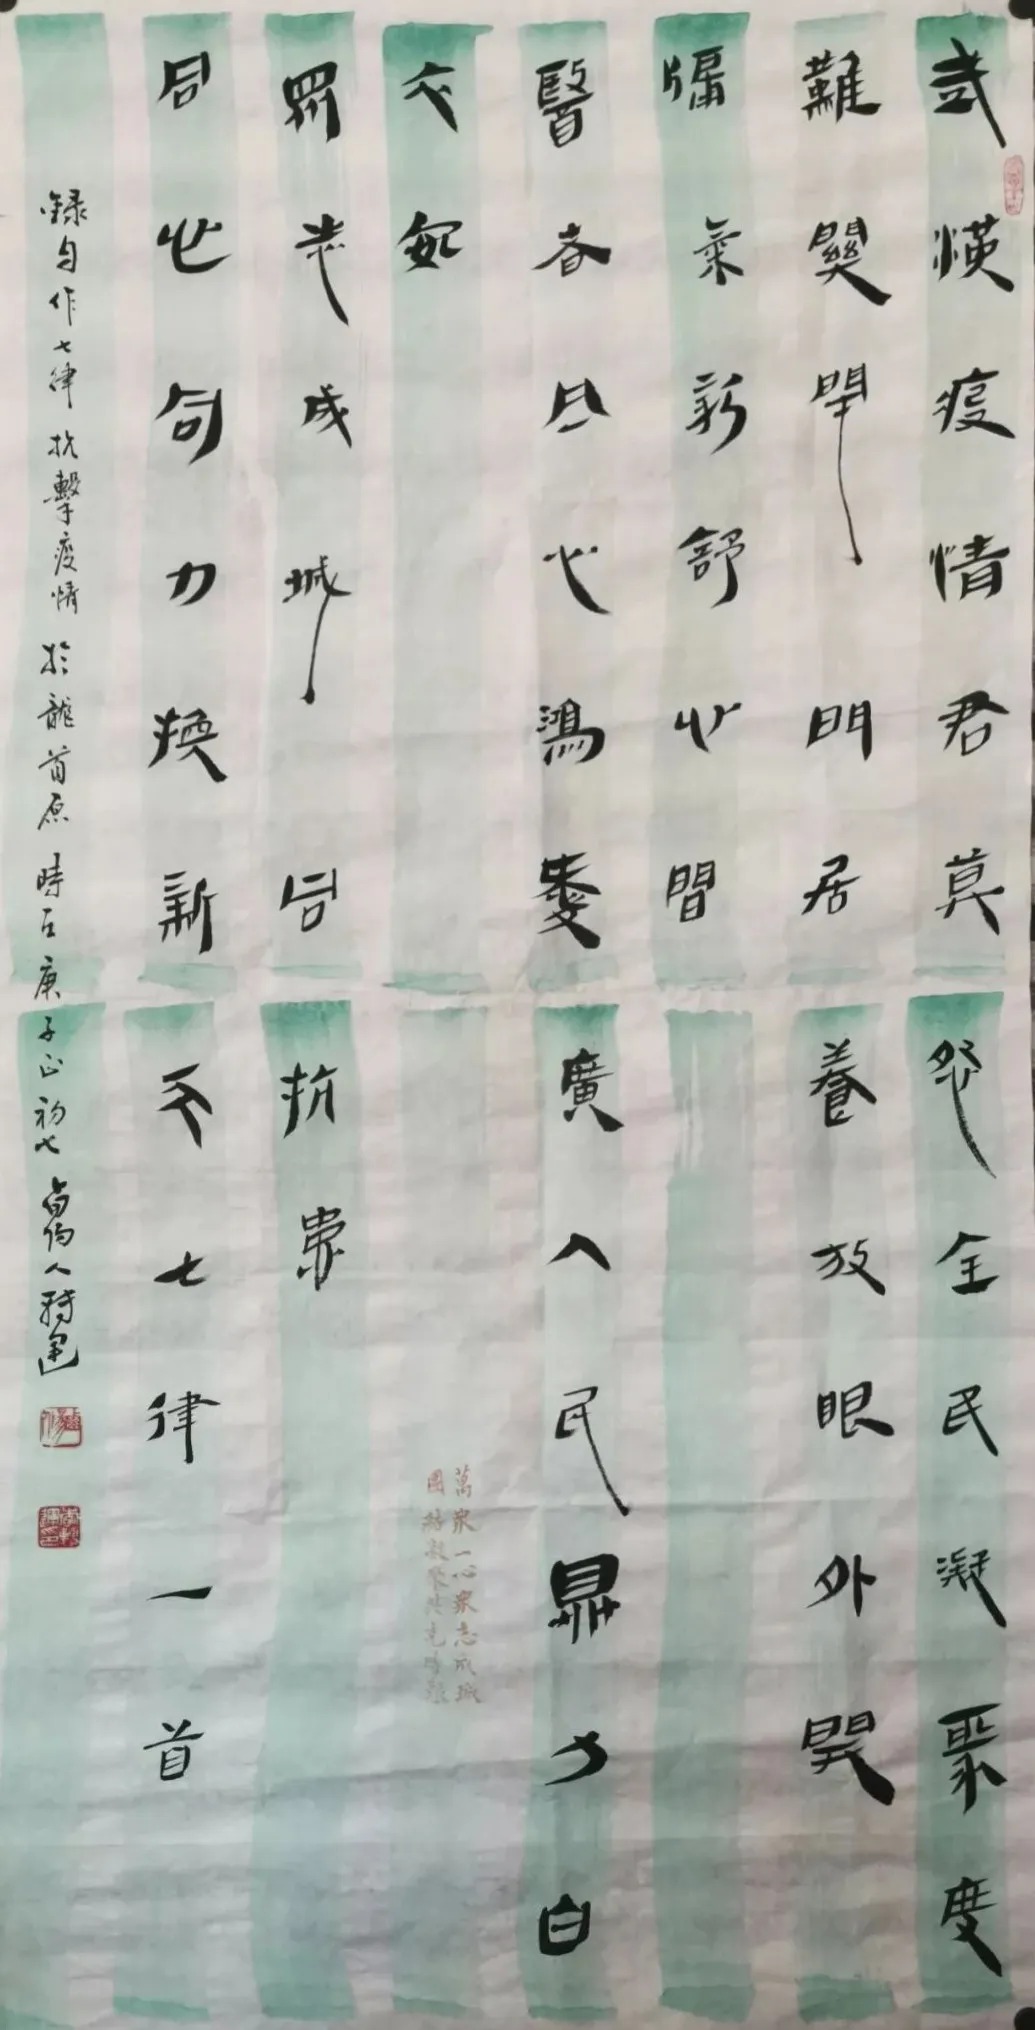 武漢疫情君莫全民凝聚度
難關閉門居養放眼外開
牖氣新舒心間
醫者丹心鴻愛廣人民鼎力白
衣如
眾志成城同抗
同心力換新天七律一首
錄自作七律抗擊疫情於龍首原時在庚子正初七
萬衆一心衆志成城
團結凝聚共克時艱